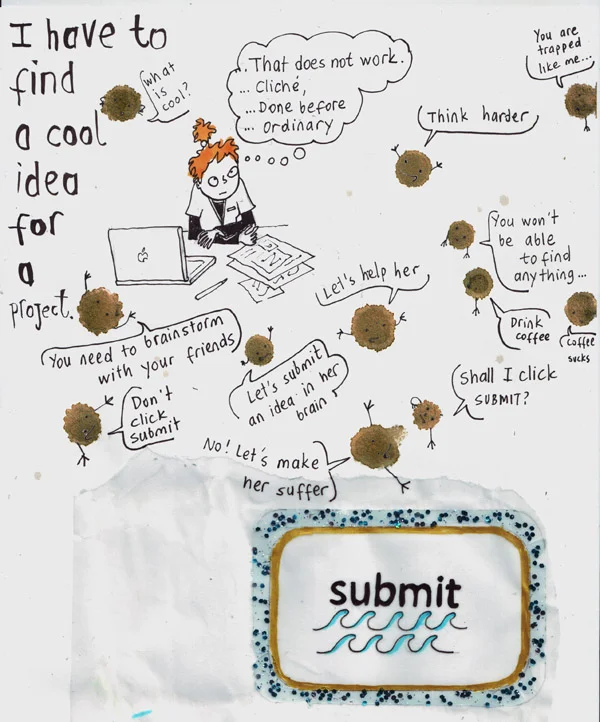 I have to
find
a cool
idea
for
a
project.
What
is
cool?
... That does not work.
... Cliché,
... Done before
... Ordinary
You are
trapped
like me...
Think harder
You won't
be able
to find
anything...
Let's help her
Drink
coffee
coffee
sucks
You need to brainstorm
with your friends
Let's submit
an idea in her
brain
Shall I click
SUBMIT?
Don't
click
submit
No! Let's make
her suffer
submit